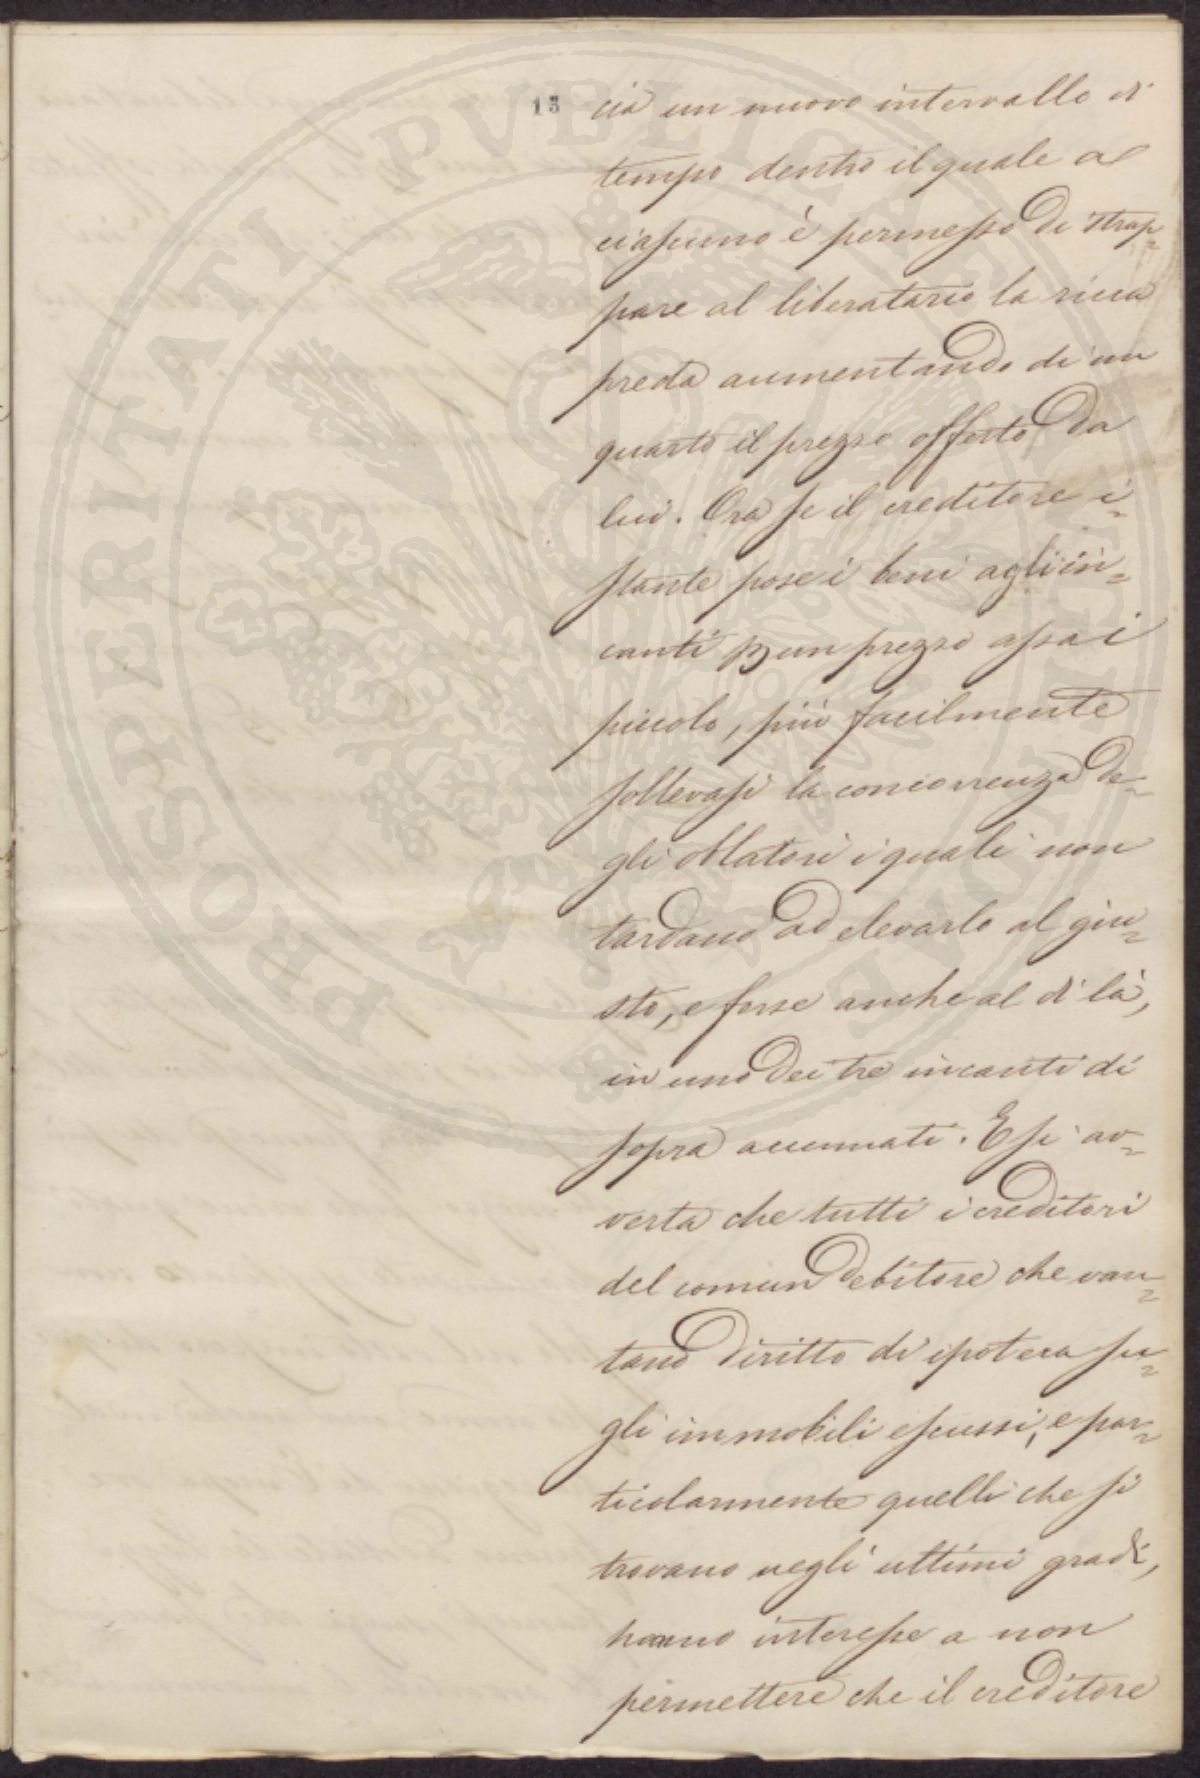 13
cia un nuovo intervallo di
tempo dentro il quale a
ciascuno è permesso di strap=
pare al liberatario la ricca
preda aumentando di un
quarto il prezzo offerto da
lui. Ora se il creditore i=
stante pose i beni agli in=
canti per un prezzo assai
piccolo, più facilmente
sollevasi la concorrenza de=
gli oblatori i quali non
tardano ad elevarlo al giu=
sto, e forse anche al di là,
in uno dei tre incanti di
sopra accennati. E si av=
verta che tutti i creditori
del comun debitore che van=
tano diritto di ipoteca su=
gli immobili escussi, e par=
ticolarmente quelli che si
trovano negli ultimi gradi,
hanno interesse a non
permettere che il creditore
PROSPERITATI PVBLICAE AVGENDAE